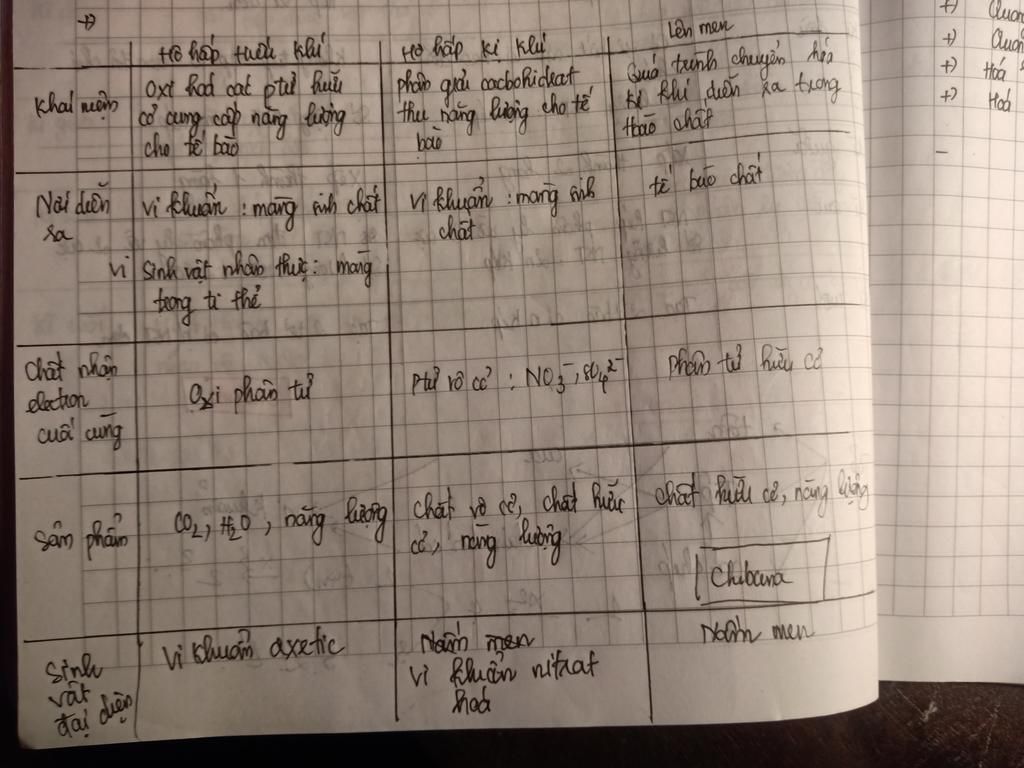 →
Hô hấp hiếu khí
Hô hấp kị khí
Lên men
Khái niệm
Oxi hoá các ptử hữu
cơ cung cấp năng lượng
cho tế bào
phân giải cacbohidrat
thu năng lượng cho tế
bào
Quá trình chuyển hoá
kị khí diễn ra trong
tbào chất
Nơi diễn
ra
vi khuẩn : màng sinh chất
vi sinh vật nhân thực : màng
trong ti thể
vi khuẩn : màng sinh
chất
tế bào chất
Chất nhận
electron
cuối cùng
Oxi phân tử
Ptử vô cơ : NO₃⁻, SO₄²⁻
phân tử hữu cơ
Sản phẩm
CO₂, H₂O, năng lượng
chất vô cơ, chất hữu
cơ, năng lượng
chất hữu cơ, năng lượng
Chibana
Sinh
vật
đại diện
Vi khuẩn axetic
Nấm men
vi khuẩn nitrat
hoá
Nấm men
+)
+)
+) Hoá
+) Hoá
-